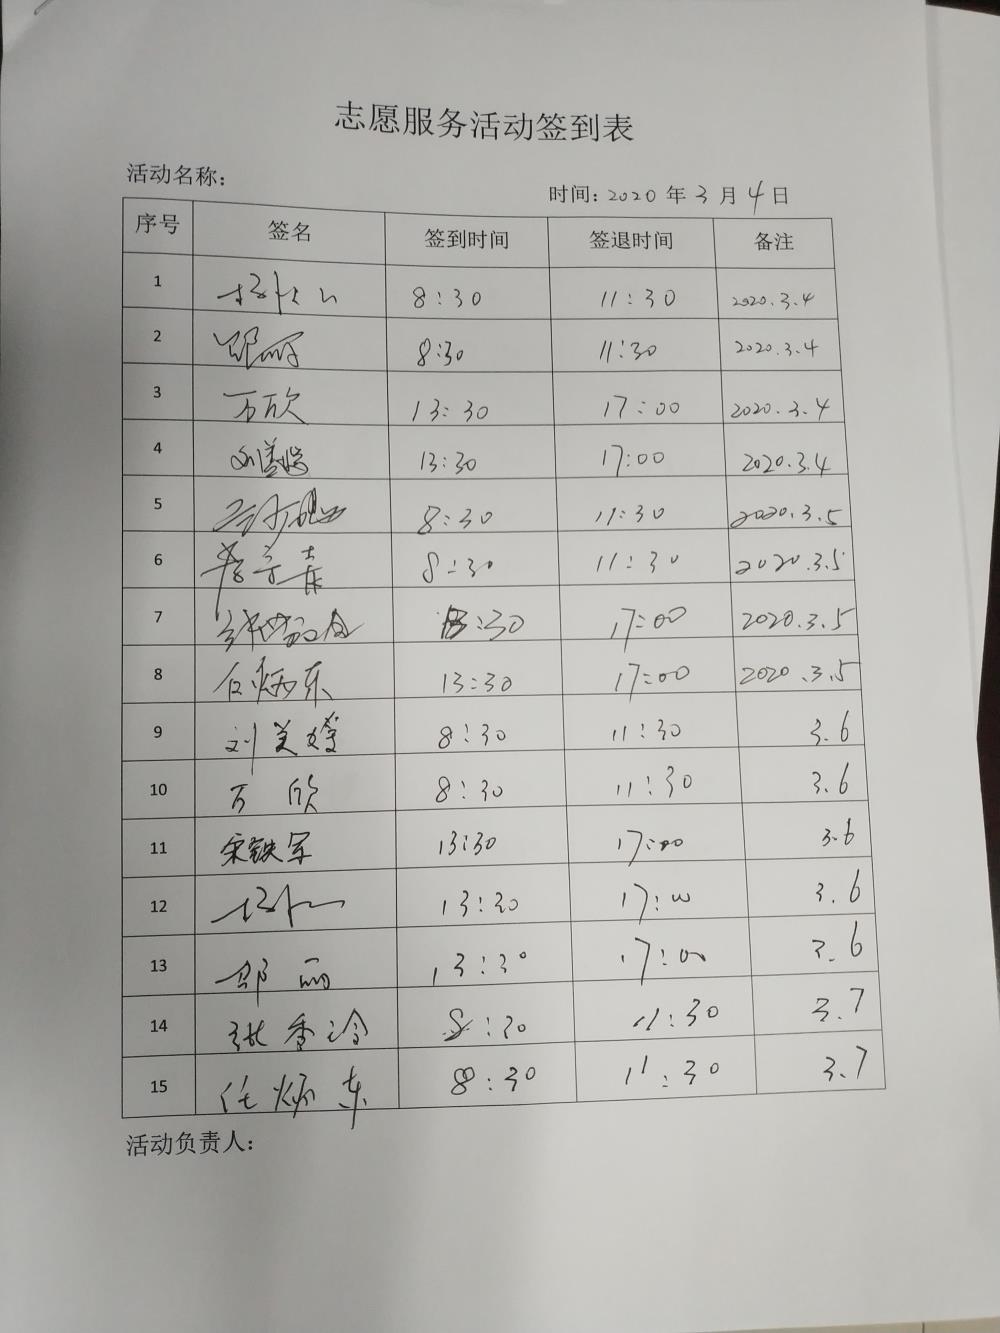 志愿服务活动签到表
活动名称:
时间: 2020 年 3 月 4 日
序号 签名 签到时间 签退时间 备注
1 8:30 11:30 2020.3.4
2 邵丽 8:30 11:30 2020.3.4
3 万欣 13:30 17:00 2020.3.4
4 13:30 17:00 2020.3.4
5 8:30 11:30 2020.3.5
6 8:30 11:30 2020.3.5
7 13:30 17:00 2020.3.5
8 任炳东 13:30 17:00 2020.3.5
9 刘美婷 8:30 11:30 3.6
10 万欣 8:30 11:30 3.6
11 宋铁军 13:30 17:00 3.6
12 13:30 17:00 3.6
13 邵丽 13:30 17:00 3.6
14 张香冷 8:30 11:30 3.7
15 任炳东 8:30 11:30 3.7
活动负责人: